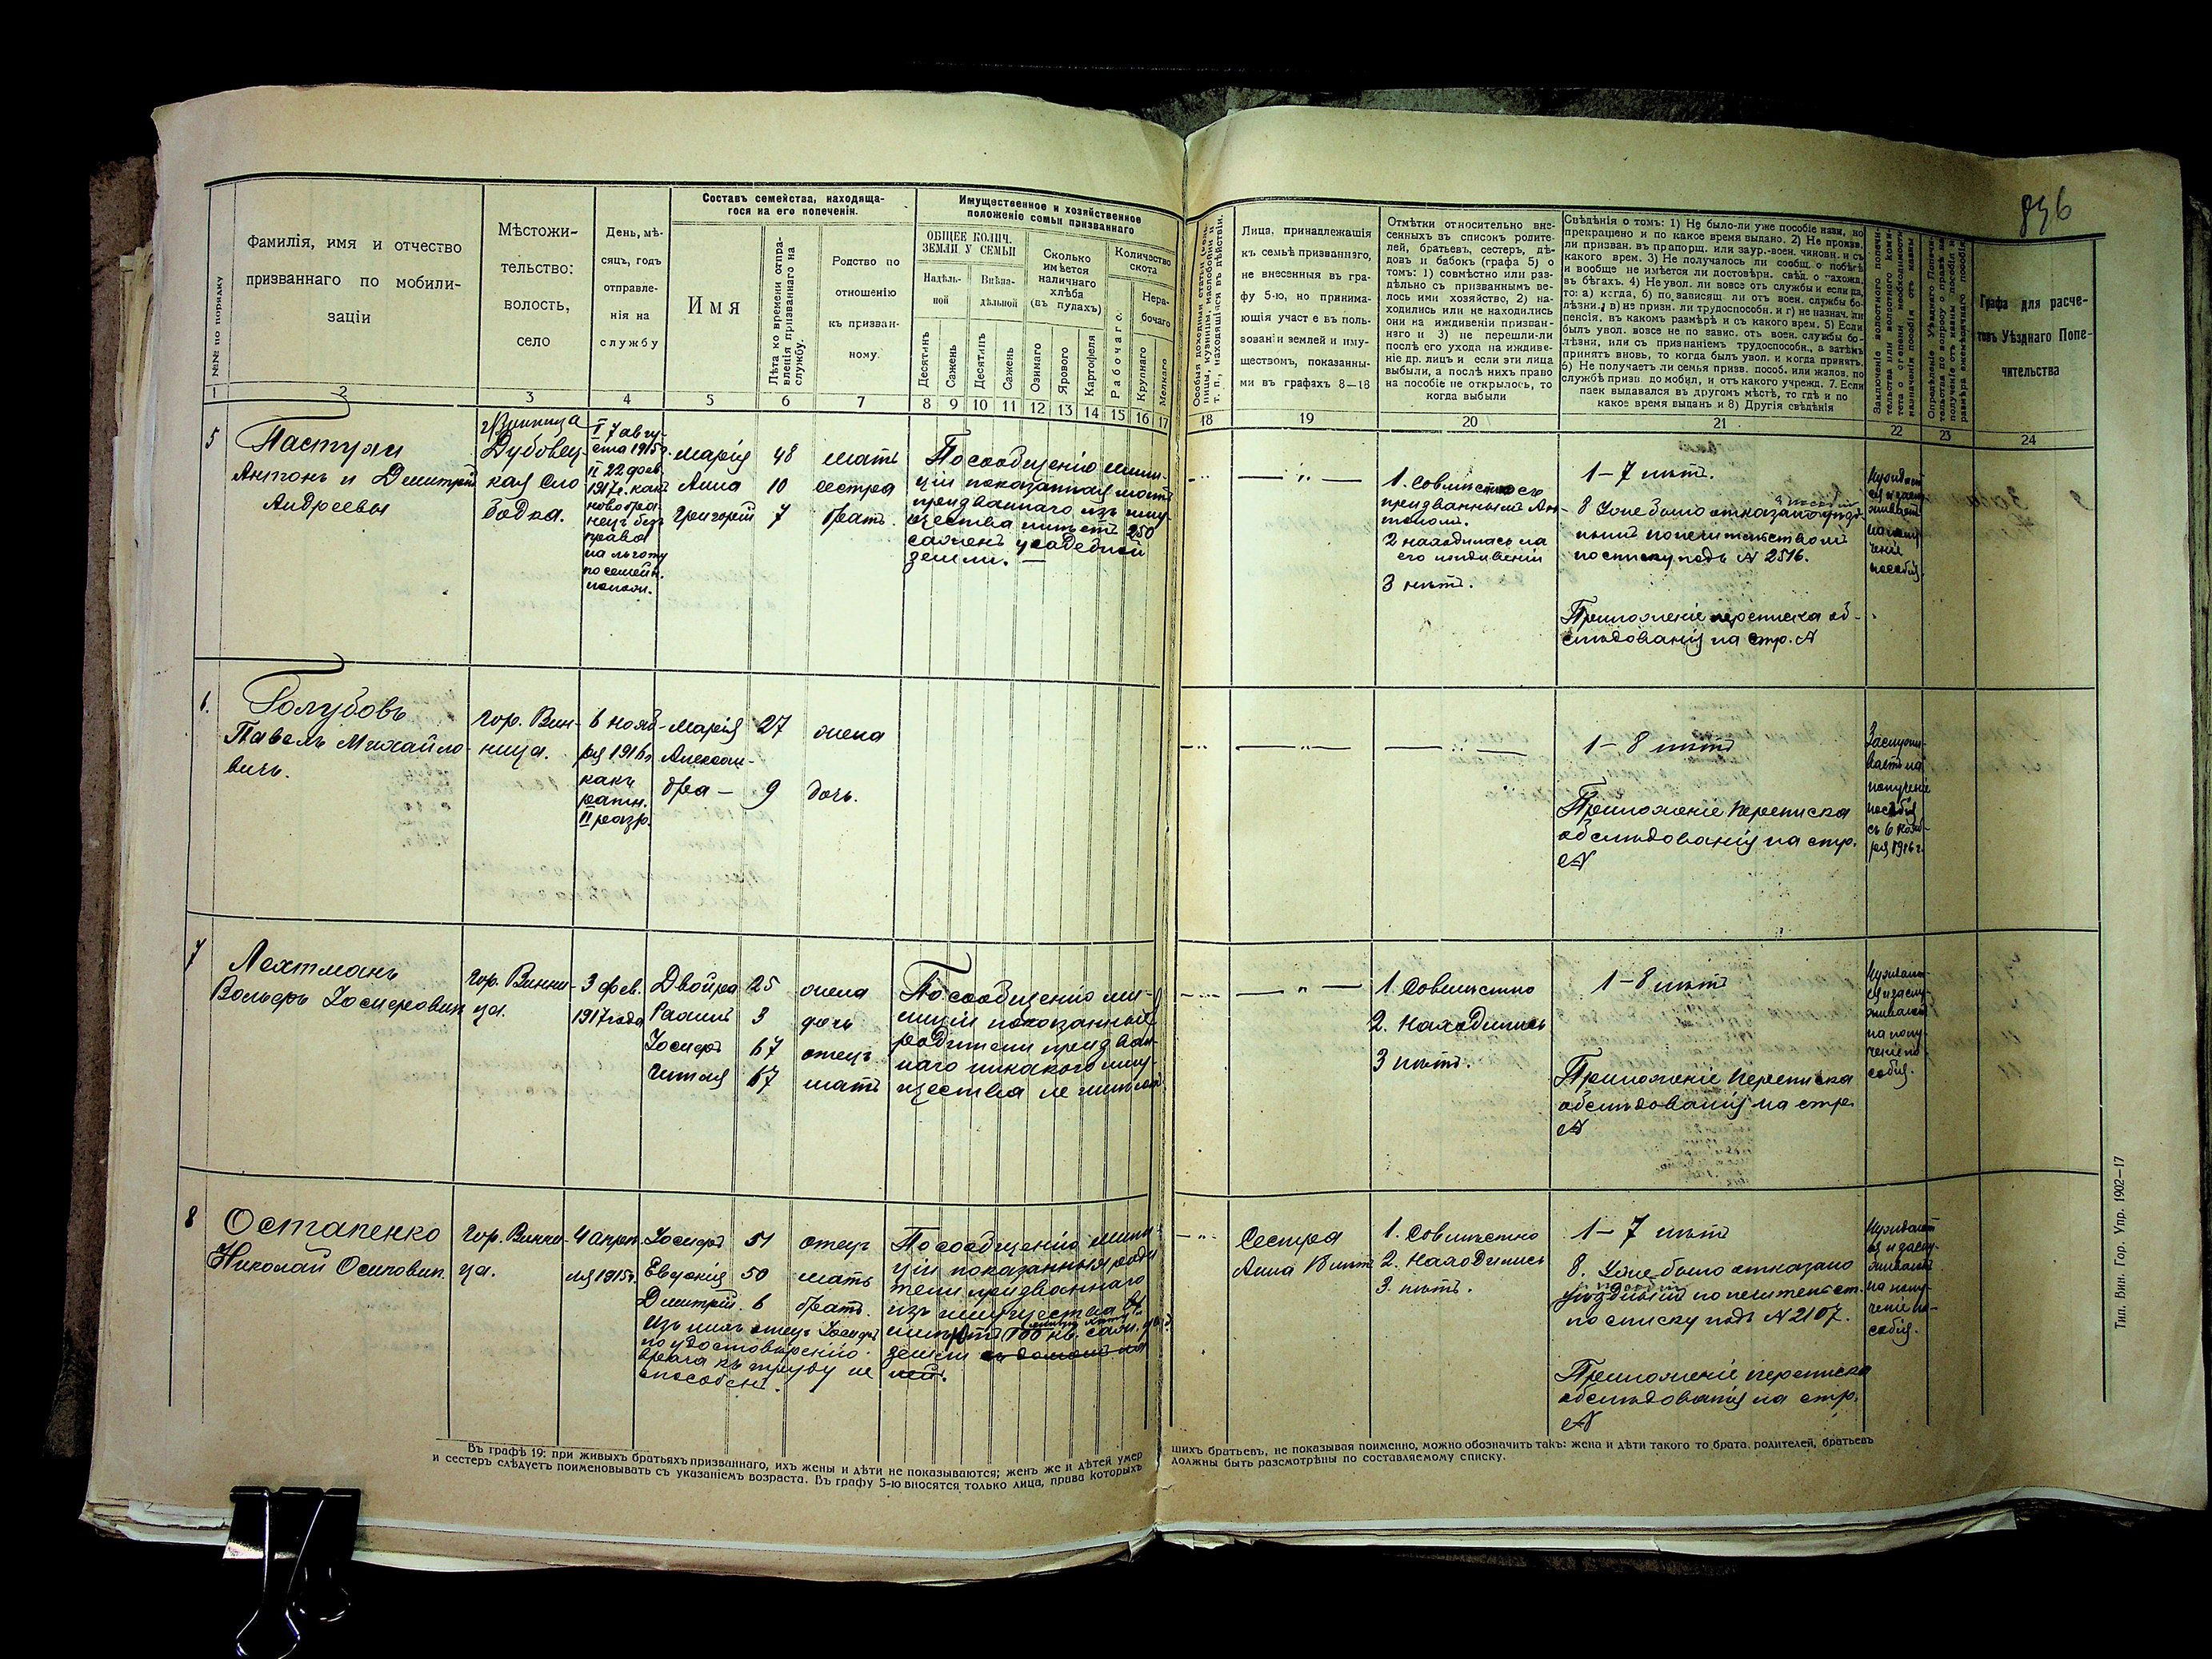 836
№№ по порядку
Фамилія, имя и отчество
призваннаго по мобили-
заціи
Мѣстожи-
тельство:
волость,
село
День, мѣ-
сяцъ, годъ
отправле-
нія на
службу
Составъ семейства, находяща-
гося на его попеченіи.
Имя
Лѣта ко времени отпра-
вленія призваннаго на
службу.
Родство по
отношенію
къ призван-
ному.
Имущественное и хозяйственное
положеніе семьи призваннаго
ОБЩЕЕ КОЛИЧ.
ЗЕМЛИ У СЕМЬИ
Надѣль-
ной
Внѣна-
дѣльной
Десятинъ
Сажень
Десятинъ
Сажень
Сколько
имѣется
наличнаго
хлѣба
(въ пудахъ)
Озимаго
Ярового
Картофеля
Количество
скота
Рабочаго.
Нера-
бочаго
Крупнаго
Мелкаго
Лица, принадлежашія
къ семьѣ призваннаго,
не внесенныя въ гра-
фу 5-ю, но принима-
ющія участ е въ поль-
зованіи землей и иму-
ществомъ, показанны-
ми въ графахъ 8—18
Отмѣтки относительно вне-
сенныхъ въ списокъ родите-
лей, братьевъ, сестеръ, дѣ-
довъ и бабокъ (графа 5) о
томъ: 1) совмѣстно или раз-
дѣльно съ призваннымъ ве-
лось ими хозяйство, 2) на-
ходились или не находились
они на иждивеніи призван-
наго и 3) не перешли-ли
послѣ его ухода на иждиве-
ніе др. лицъ и если эти лица
выбыли, а послѣ нихъ право
на пособіе не открылось, то
когда выбыли
Свѣдѣнія о томъ: 1) Не было-ли уже пособіе назн, но
прекращено и по какое время выдано. 2) Не прожив.
ли призван. въ прапорщ. или заур.-воен. чиновн. и съ
какого врем. 3) Не получалось ли сообщ. о побѣгѣ
и вообще не имѣется ли достовѣрн. свѣд. о нахожд.
въ бѣгахъ. 4) Не увол. ли вовсе отъ службы и если да,
то: а) когда, б) по зависящ. ли отъ воен. службы бо-
лѣзни, в) не призн. ли трудоспособн. и г) не назнач. ли
пенсія, въ какомъ размѣрѣ и съ какого врем. 5) Если
былъ увол. вовсе не по завис. отъ воен. службы бо-
лѣзни, или съ признаніемъ трудоспособн., а затѣмъ
принятъ вновь, то когда былъ увол. и когда принятъ.
6) Не получаетъ ли семья призв. пособ. или жалов. по
службѣ призв. до мобил, и отъ какого учрежд. 7. Если
паек выдавался въ другомъ мѣстѣ, то гдѣ и по
какое время выданъ и 8) Другія свѣдѣнія
Графа для расче-
товъ Уѣзднаго Попе-
чительства
1 2 3 4 5 6 7 8 9 10 11 12 13 14 15 16 17 18 19 20 21 22 23 24
5
Антонъ и Дмитрій
Андреевы
г. Винница
Дубовец-
кая Сло-
бодка.
I 7 авгу-
ста 1915 г.
II 22 фев.
1917 г. какъ
новобра-
нецъ безъ
права
на льготу
по семейн.
полож.
Марія 48 мать
Анна 10 сестра
Григорій 7 братъ
По сообщенію мили-
ціи показанная мать
призваннаго изъ иму-
щества имѣетъ 250
сажень усадебной
земли. —
1. Совмѣстно съ
призваннымъ Ан-
тономъ.
2 находилась на
его иждивеніи
3 нѣтъ.
1—7 нѣтъ.
8 Уже было отказано уѣзд-
нымъ попечительствомъ
по списку подъ № 2516.
Приложеніе переписка об-
слѣдованія на стр. №
6.
Голубовъ
Павелъ Михайло-
вичъ.
гор. Вин-
ница.
6 нояб-
ря 1916 г.
какъ
ратн.
II разр.
Марія 27 жена
Алексан-
дра — 9 дочь.
1—8 нѣтъ
Приложеніе переписка
обслѣдованія на стр.
№
Заслужи-
ваетъ на
полученіе
пособія
съ 6 нояб-
ря 1916 г.
7
Лехтманъ
Вольфъ Іосифовичъ
гор. Винни-
ца.
3 фев.
1917 года
Двойра 25 жена
3 дочь
Іосифъ 67 отецъ
67 мать
По сообщенію ми-
лиціи показанные
родители призван-
наго никакого иму-
щества не имѣютъ
1. Совмѣстно
2. Находились
3 нѣтъ.
1—8 нѣтъ
Приложеніе переписка
обслѣдованія на стр.
№
8
Остапенко
Николай Осиповичъ.
гор. Винни-
ца.
4 апрѣ-
ля 1915 г.
Іосифъ 51 отецъ
Евдокія 50 мать
Дмитрій 6 братъ.
Изъ нихъ отецъ Іосифъ
по удостовѣренію
врача къ труду не
способенъ.
По сообщенію мили-
ціи показанныя роди
тели призваннаго
изъ имущества
земли съ домомъ на
ней.
Сестра
Анна 18 лѣтъ
1. Совмѣстно
2. Находились
3. нѣтъ.
1—7 нѣтъ
8. Уже было отказано
уѣзднымъ попечительст.
по списку подъ № 2107.
Приложеніе переписка
обслѣдованія на стр.
№
Въ графѣ 19: при живыхъ братьяхъ призваннаго, ихъ жены и дѣти не показываются; женъ же и дѣтей умер
шихъ братьевъ, не показывая поименно, можно обозначить такъ: жена и дѣти такого то брата. родителей, братьевъ
и сестеръ слѣдуетъ поименовывать съ указаніемъ возраста. Въ графу 5-ю вносятся только лица, права которыхъ
должны быть разсмотрѣны по составляемому списку.
Тип. Вин. Гор. Упр. 1902—17